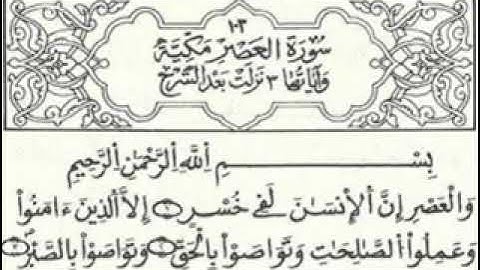 ١٠٣
سُورَةُ العَصْرِ مَكِّيَّةٌ
وَآيَاتُهَا ٣ نَزَلَتْ بَعْدَ الشَّرْحِ
بِسْمِ اِللَّهِ اِلرَّحْمَٰنِ اِلرَّحِيمِ
وَالْعَصْرِ إِنَّ اَلْإِنسَٰنَ لَفِے خُسْرٍ ۝١ إِلَّا اَلَّذِينَ ءَامَنُواْ
وَعَمِلُواْ اُلصَّٰلِحَٰتِ وَتَوَاصَوْاْ بِالْحَقِّ ۝٢ وَتَوَاصَوْاْ بِالصَّبْرِ ۝٣